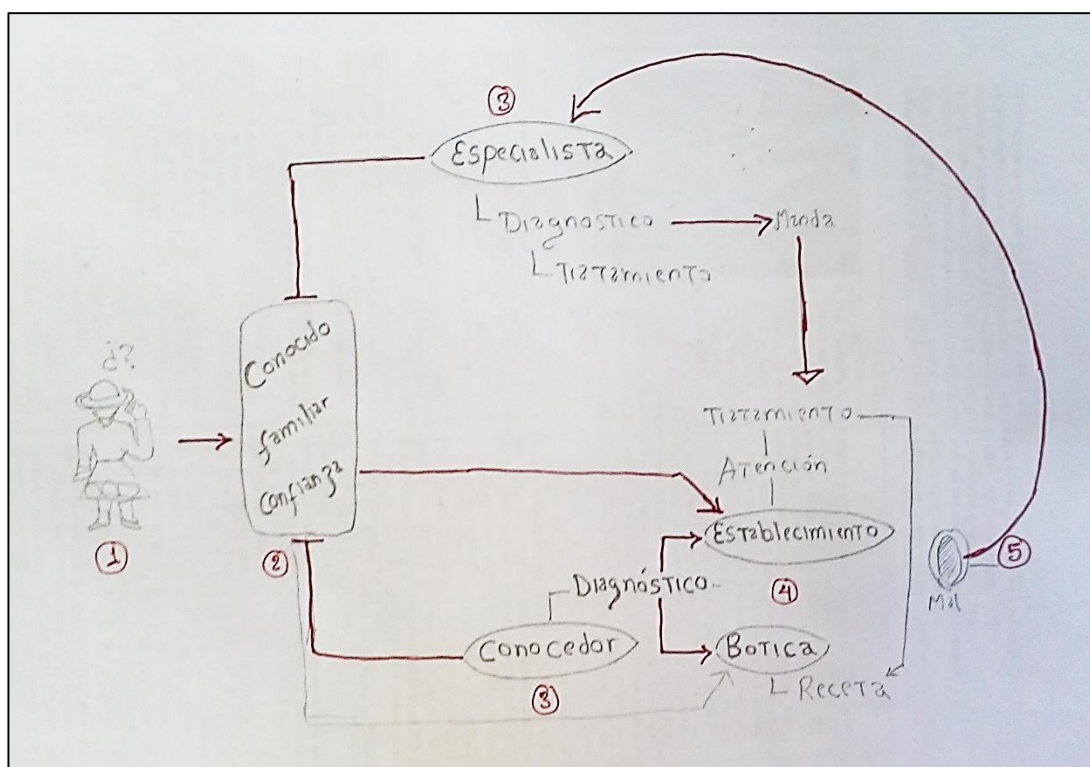 ③
Especialista
Diagnostico
Manda
Tratamiento
¿?
Conocido
familiar
confianza
①
②
Tratamiento
Atención
Establecimiento
④
⑤
Mal
Diagnóstico
Conocedor
③
Botica
Receta